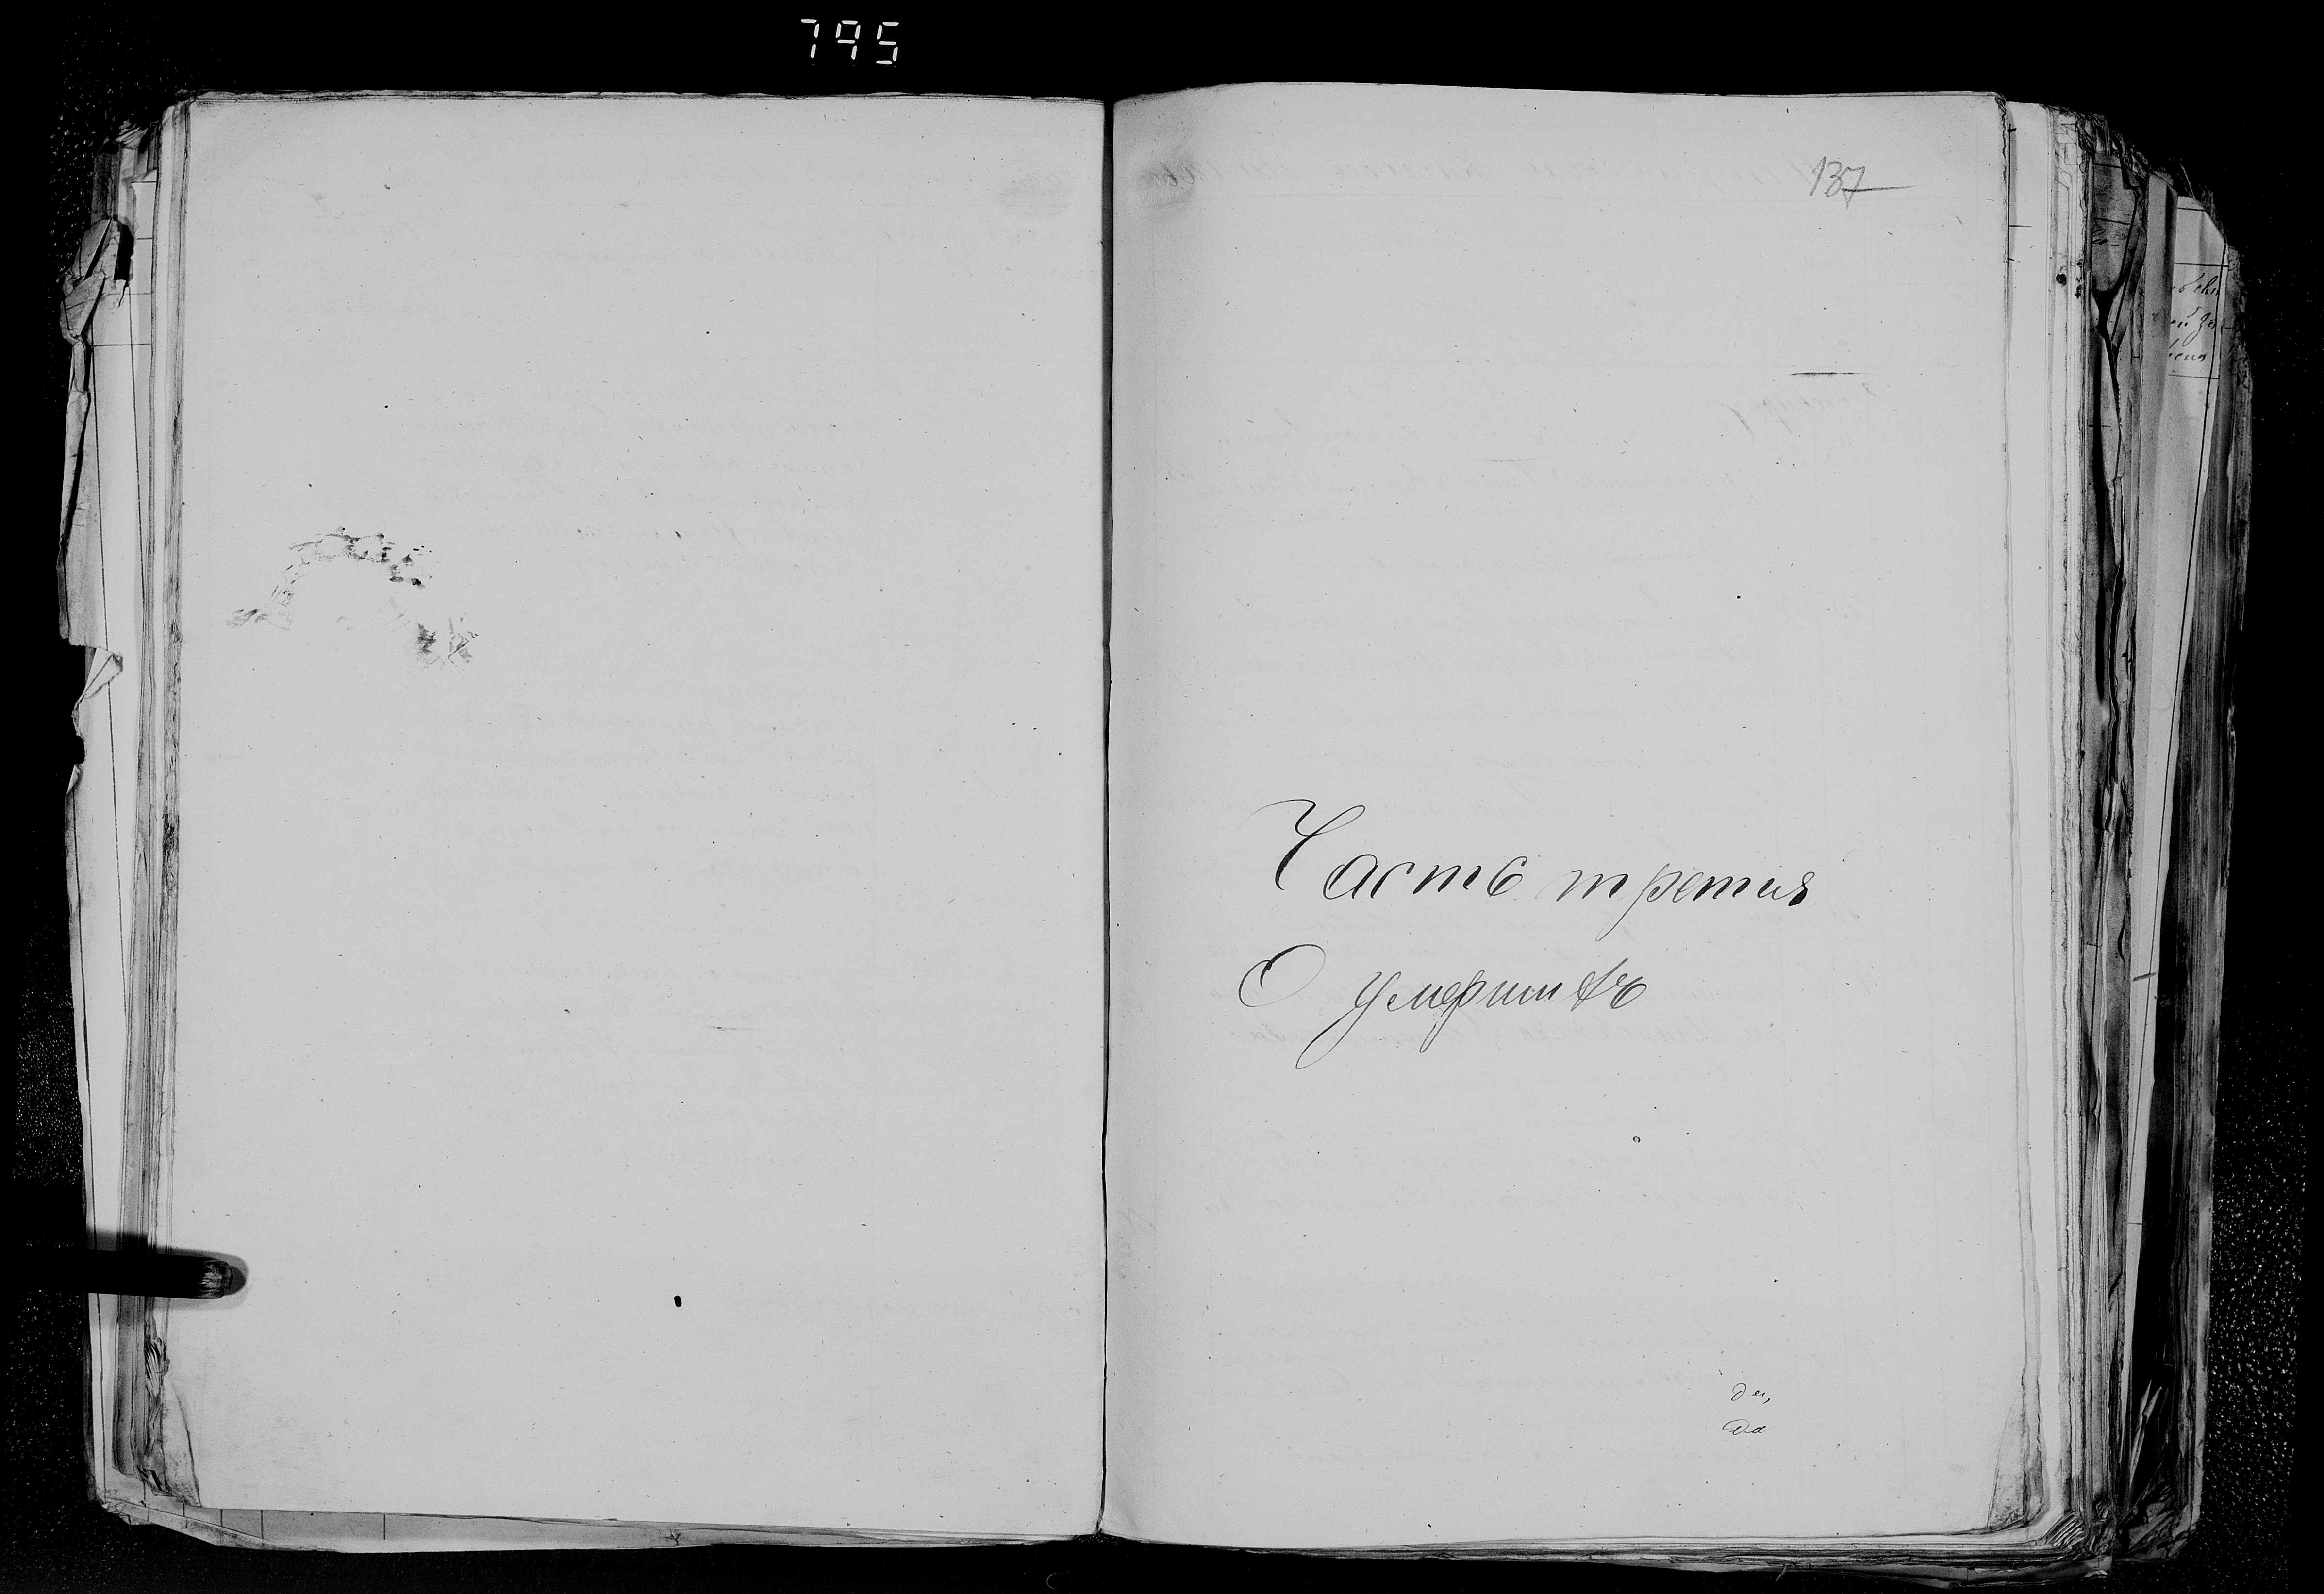 795
137
Часть третия
О умершихъ